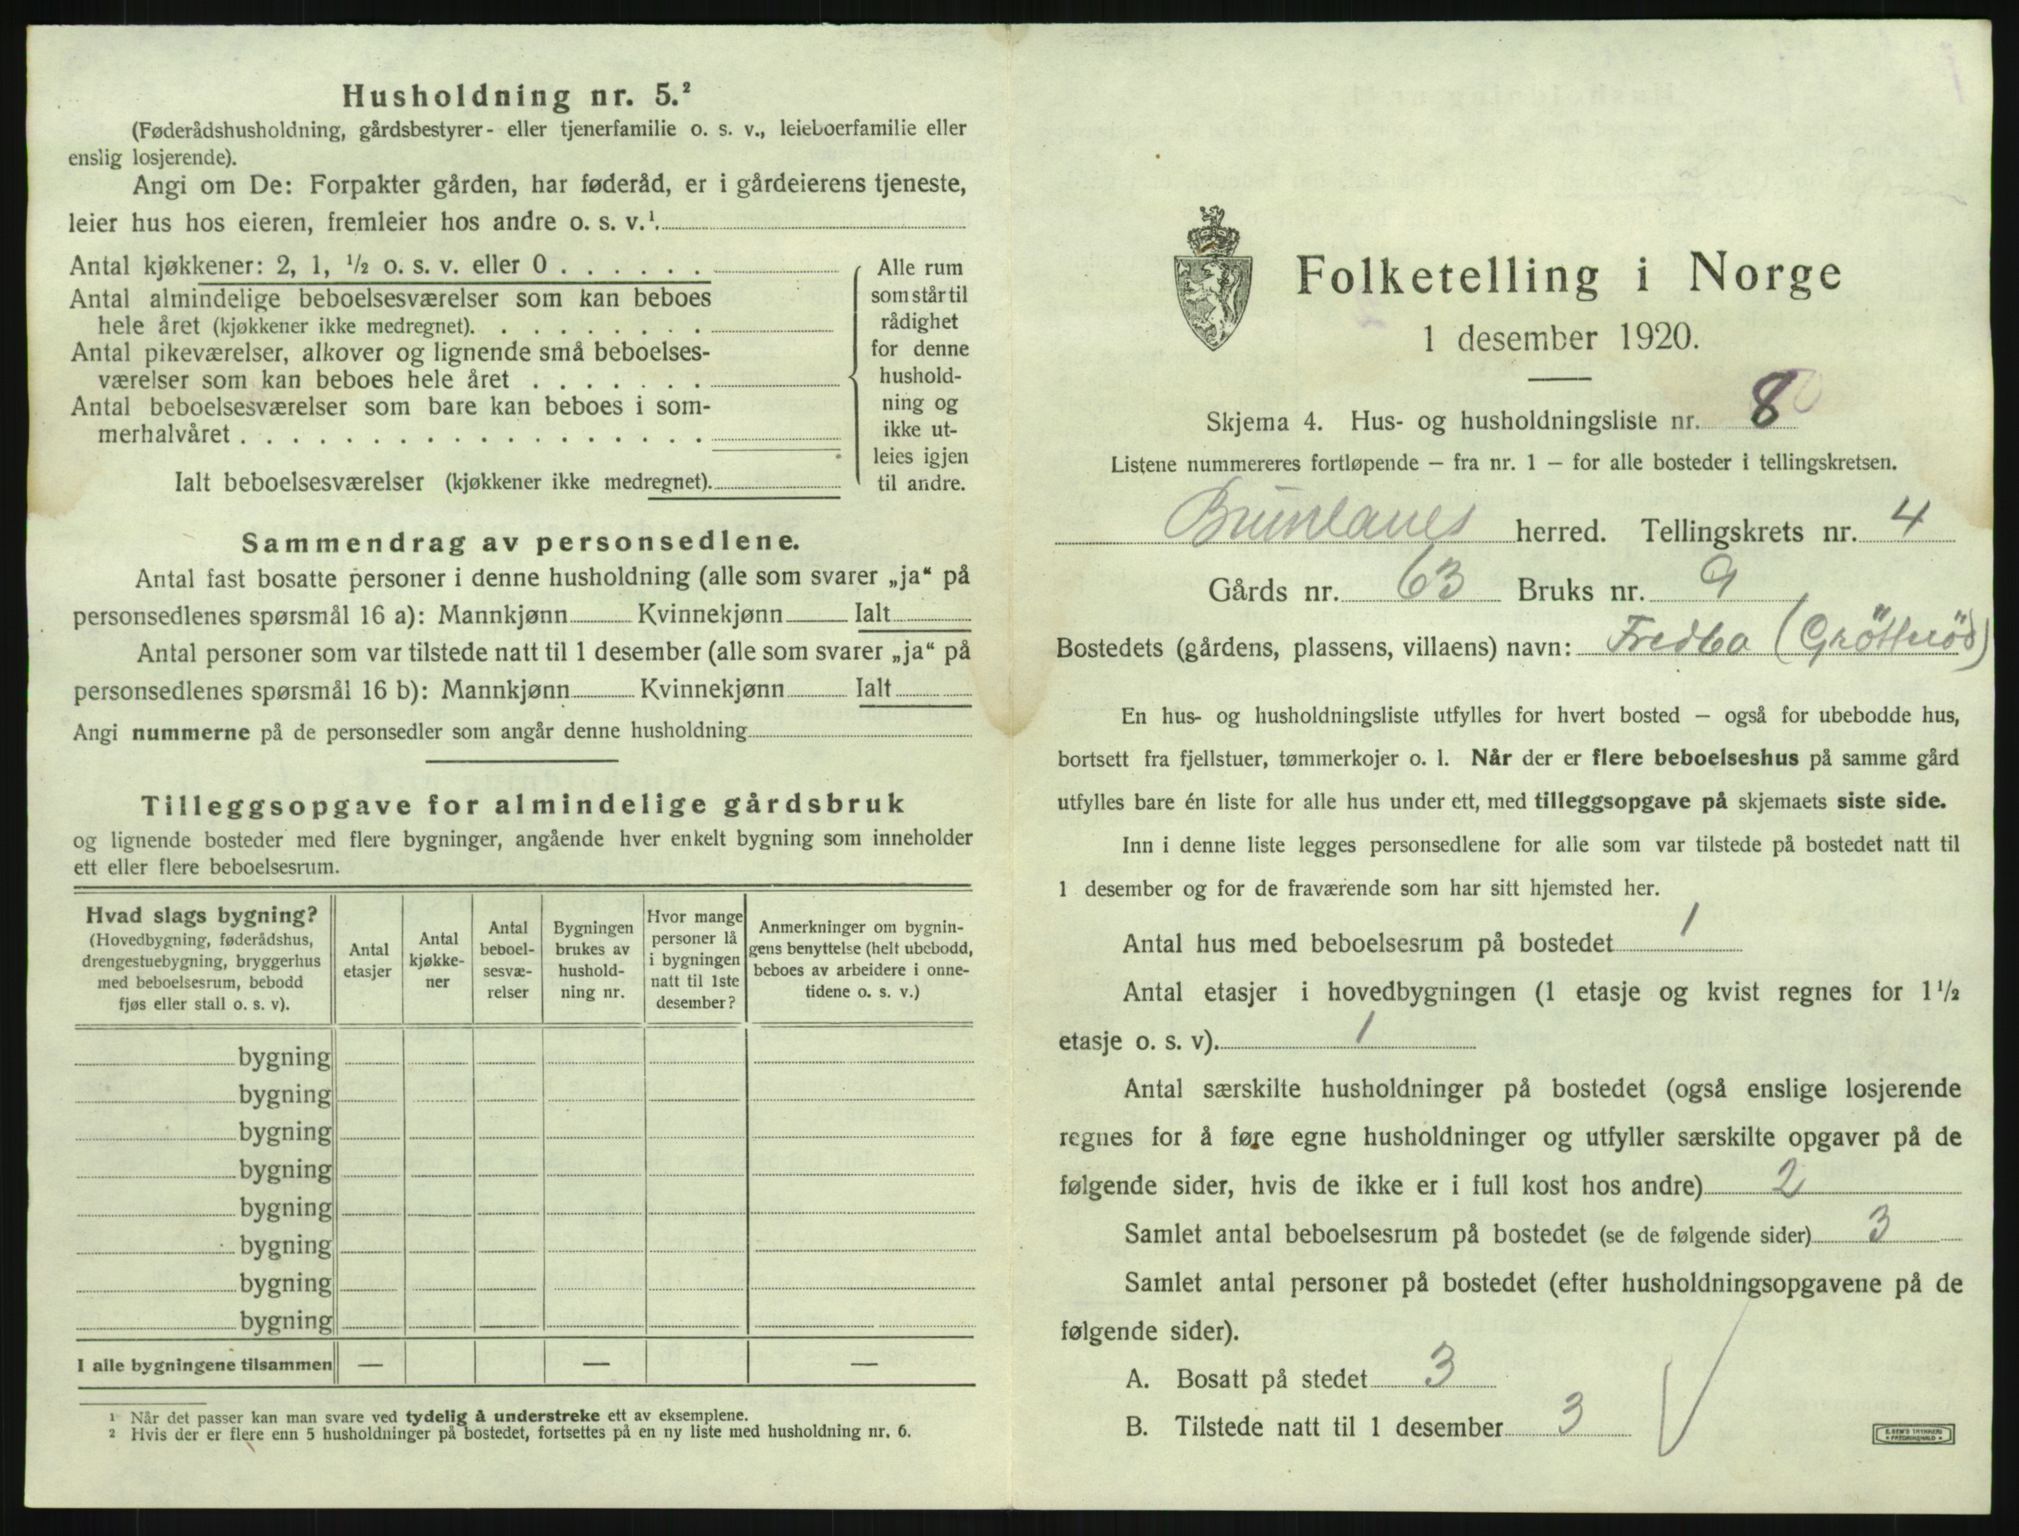 Husholdning nr. 5.²
(Føderådshusholdning, gårdsbestyrer- eller tjenerfamilie o. s. v., leieboerfamilie eller
enslig losjerende).
Angi om De: Forpakter gården, har føderåd, er i gårdeierens tjeneste,
leier hus hos eieren, fremleier hos andre o. s. v.¹.
Antal kjøkkener: 2, 1, ½ o. s. v. eller 0 . . . . . .
Antal almindelige beboelsesværelser som kan beboes
hele året (kjøkkener ikke medregnet). . . . . . . . .
Antal pikeværelser, alkover og lignende små beboelses-
værelser som kan beboes hele året . . . . . . .
Antal beboelsesværelser som bare kan beboes i som-
merhalvåret . . . . . . . . . . . . . . . . . .
Ialt beboelsesværelser (kjøkkener ikke medregnet).
Alle rum
som står til
rådighet
for denne
hushold-
ning og
ikke ut-
leies igjen
til andre.
Sammendrag av personsedlene.
Antal fast bosatte personer i denne husholdning (alle som svarer „ja“ på
personsedlenes spørsmål 16 a): Mannkjønn Kvinnekjønn Ialt
Antal personer som var tilstede natt til 1 desember (alle som svarer „ja“ på
personsedlenes spørsmål 16 b): Mannkjønn Kvinnekjønn Ialt
Angi nummerne på de personsedler som angår denne husholdning
Tilleggsopgave for almindelige gårdsbruk
og lignende bosteder med flere bygninger, angående hver enkelt bygning som inneholder
ett eller flere beboelsesrum.
Hvad slags bygning?
(Hovedbygning, føderådshus,
drengestuebygning, bryggerhus
med beboelsesrum, bebodd
fjøs eller stall o. s. v).
Antal
etasjer
Antal
kjøkke-
ner
Antal
beboel-
sesvæ-
relser
Bygningen
brukes av
hushold-
ning nr.
Hvor mange
personer lå
i bygningen
natt til 1ste
desember?
Anmerkninger om bygnin-
gens benyttelse (helt ubebodd,
beboes av arbeidere i onne-
tidene o. s. v.)
bygning
bygning
bygning
bygning
bygning
bygning
bygning
bygning
I alle bygningene tilsammen — — —
¹ Når det passer kan man svare ved tydelig å understreke ett av eksemplene.
² Hvis der er flere enn 5 husholdninger på bostedet, fortsettes på en ny liste med husholdning nr. 6.
Folketelling i Norge
1 desember 1920.
Skjema 4. Hus- og husholdningsliste nr. 8
Listene nummereres fortløpende – fra nr. 1 – for alle bosteder i tellingskretsen.
Brunlanes herred. Tellingskrets nr. 4
Gårds nr. 63 Bruks nr. 9
Bostedets (gårdens, plassens, villaens) navn: Fredbo (Grøtterød)
En hus- og husholdningsliste utfylles for hvert bosted – også for ubebodde hus,
bortsett fra fjellstuer, tømmerkojer o. l. Når der er flere beboelseshus på samme gård
utfylles bare én liste for alle hus under ett, med tilleggsopgave på skjemaets siste side.
Inn i denne liste legges personsedlene for alle som var tilstede på bostedet natt til
1 desember og for de fraværende som har sitt hjemsted her.
Antal hus med beboelsesrum på bostedet 1
Antal etasjer i hovedbygningen (1 etasje og kvist regnes for 1½
etasje o. s. v). 1
Antal særskilte husholdninger på bostedet (også enslige losjerende
regnes for å føre egne husholdninger og utfyller særskilte opgaver på de
følgende sider, hvis de ikke er i full kost hos andre) 2
Samlet antal beboelsesrum på bostedet (se de følgende sider) 3
Samlet antal personer på bostedet (efter husholdningsopgavene på de
følgende sider).
A. Bosatt på stedet 3
B. Tilstede natt til 1 desember 3